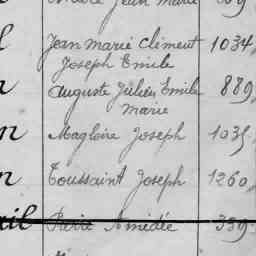 Jean Marie
Jean Marie Clément 1034
Joseph Emile
Auguste Julien Emile 889
Marie
Magloire Joseph 1035
n Toussaint Joseph 1260
ril Pierre Amédée 339